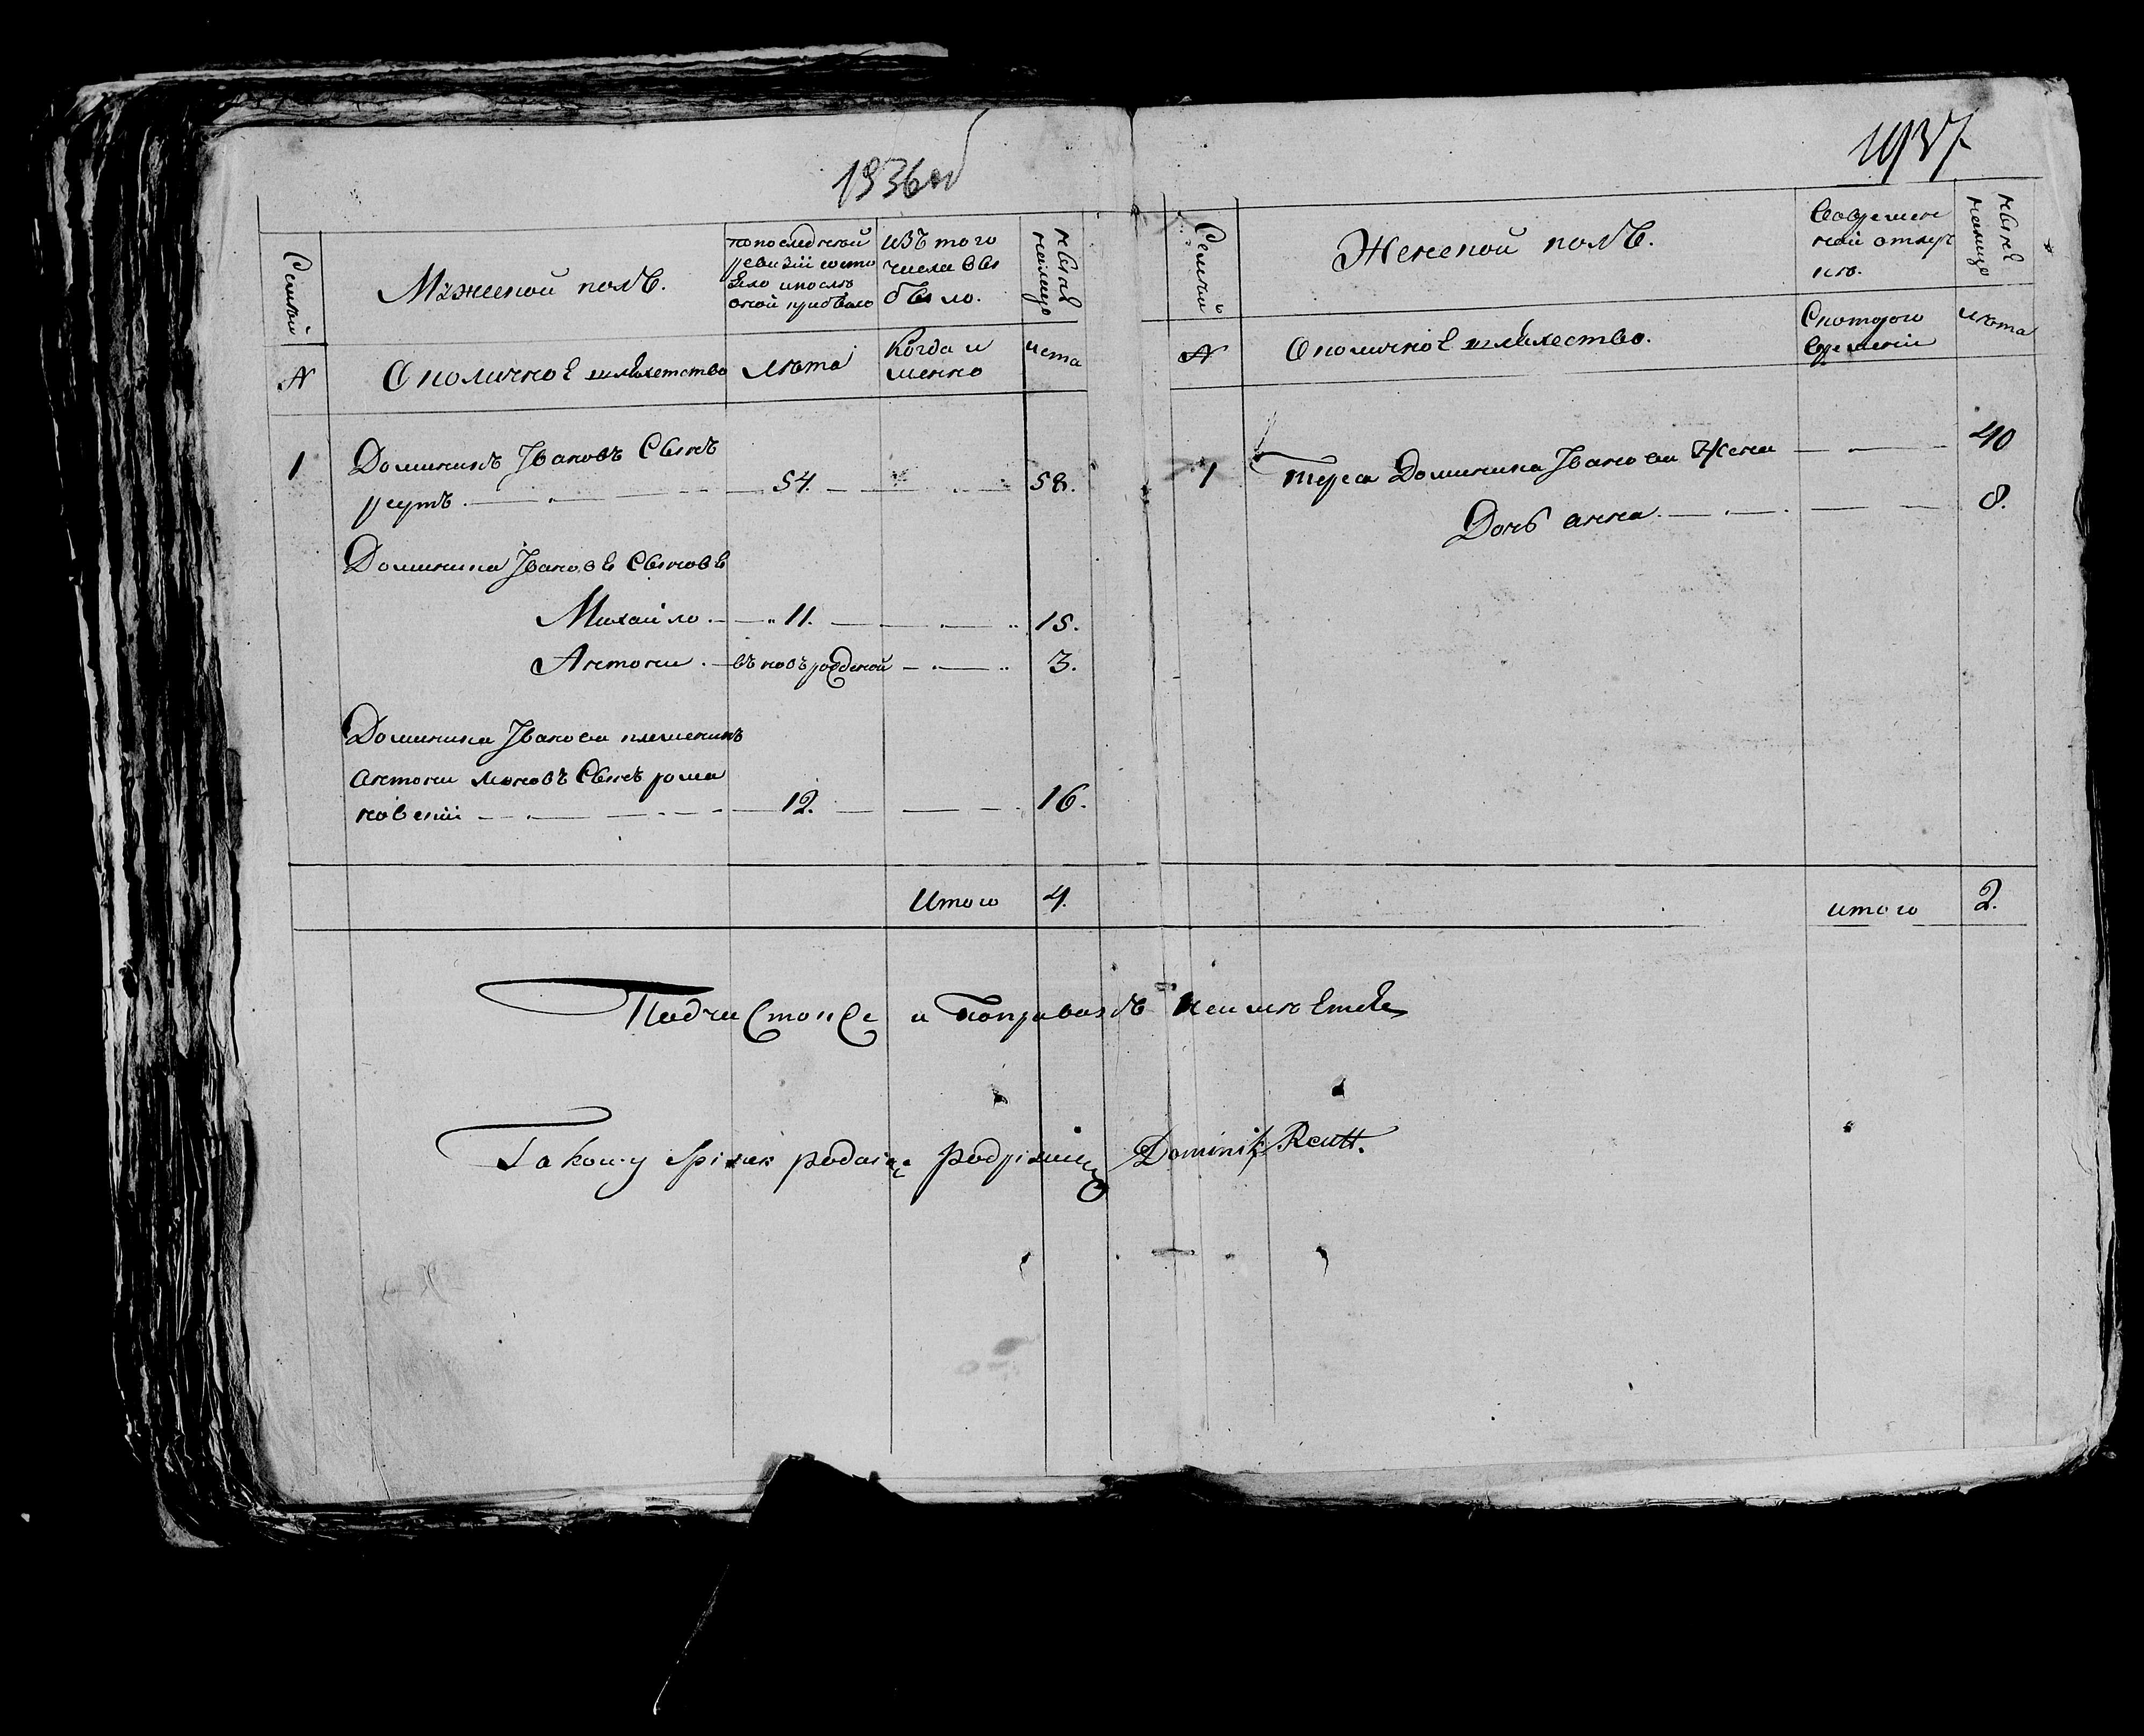 1936
1937
Семьи
Мужеской полъ.
по последней
ревизіи состо
яло и после
оной прибыло
изъ того
числа вы
было.
ныне
налицо
№
О поличное шляхетство
лета
Когда и
менно
лета
1
Доминикъ Ивановъ Сынъ
реутъ.
54.
58.
Доминика Иванова Сыновья
Михайло.
11.
15.
Антони.
въновърожденой
3.
Доминика Иванова племеникъ
антони Сынъ рома
новскій
12.
16.
Итого
4.
Семьи
Женской полъ.
Во времен
ной отлуч
ке.
ныне
налицо
№
Околичное шляхество.
С котораго
времени
лета
1
Тереса Доминика Иванова Жена
40
Дочь анна.
8.
итого
2.
Подчисток и поправокъ неимеется
Takowy Spisek podaiąc podpisuię Dominik Reutt.